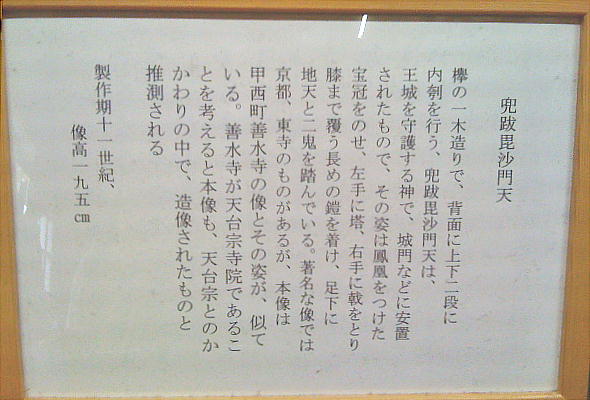 兜跋毘沙門天
欅の一木造りで、背面に上下二段に
内刳を行う、兜跋毘沙門天は、
王城を守護する神で、城門などに安置
されたもので、その姿は鳳凰をつけた
宝冠をのせ、左手に塔、右手に戟をとり
膝まで覆う長めの鎧を着け、足下に
地天と二鬼を踏んでいる。著名な像では
京都、東寺のものがあるが、本像は
甲西町善水寺の像とその姿が、似て
いる。善水寺が天台宗寺院であるこ
とを考えると本像も、天台宗とのか
かわりの中で、造像されたものと
推測される
製作期十一世紀、
像高一九五㎝